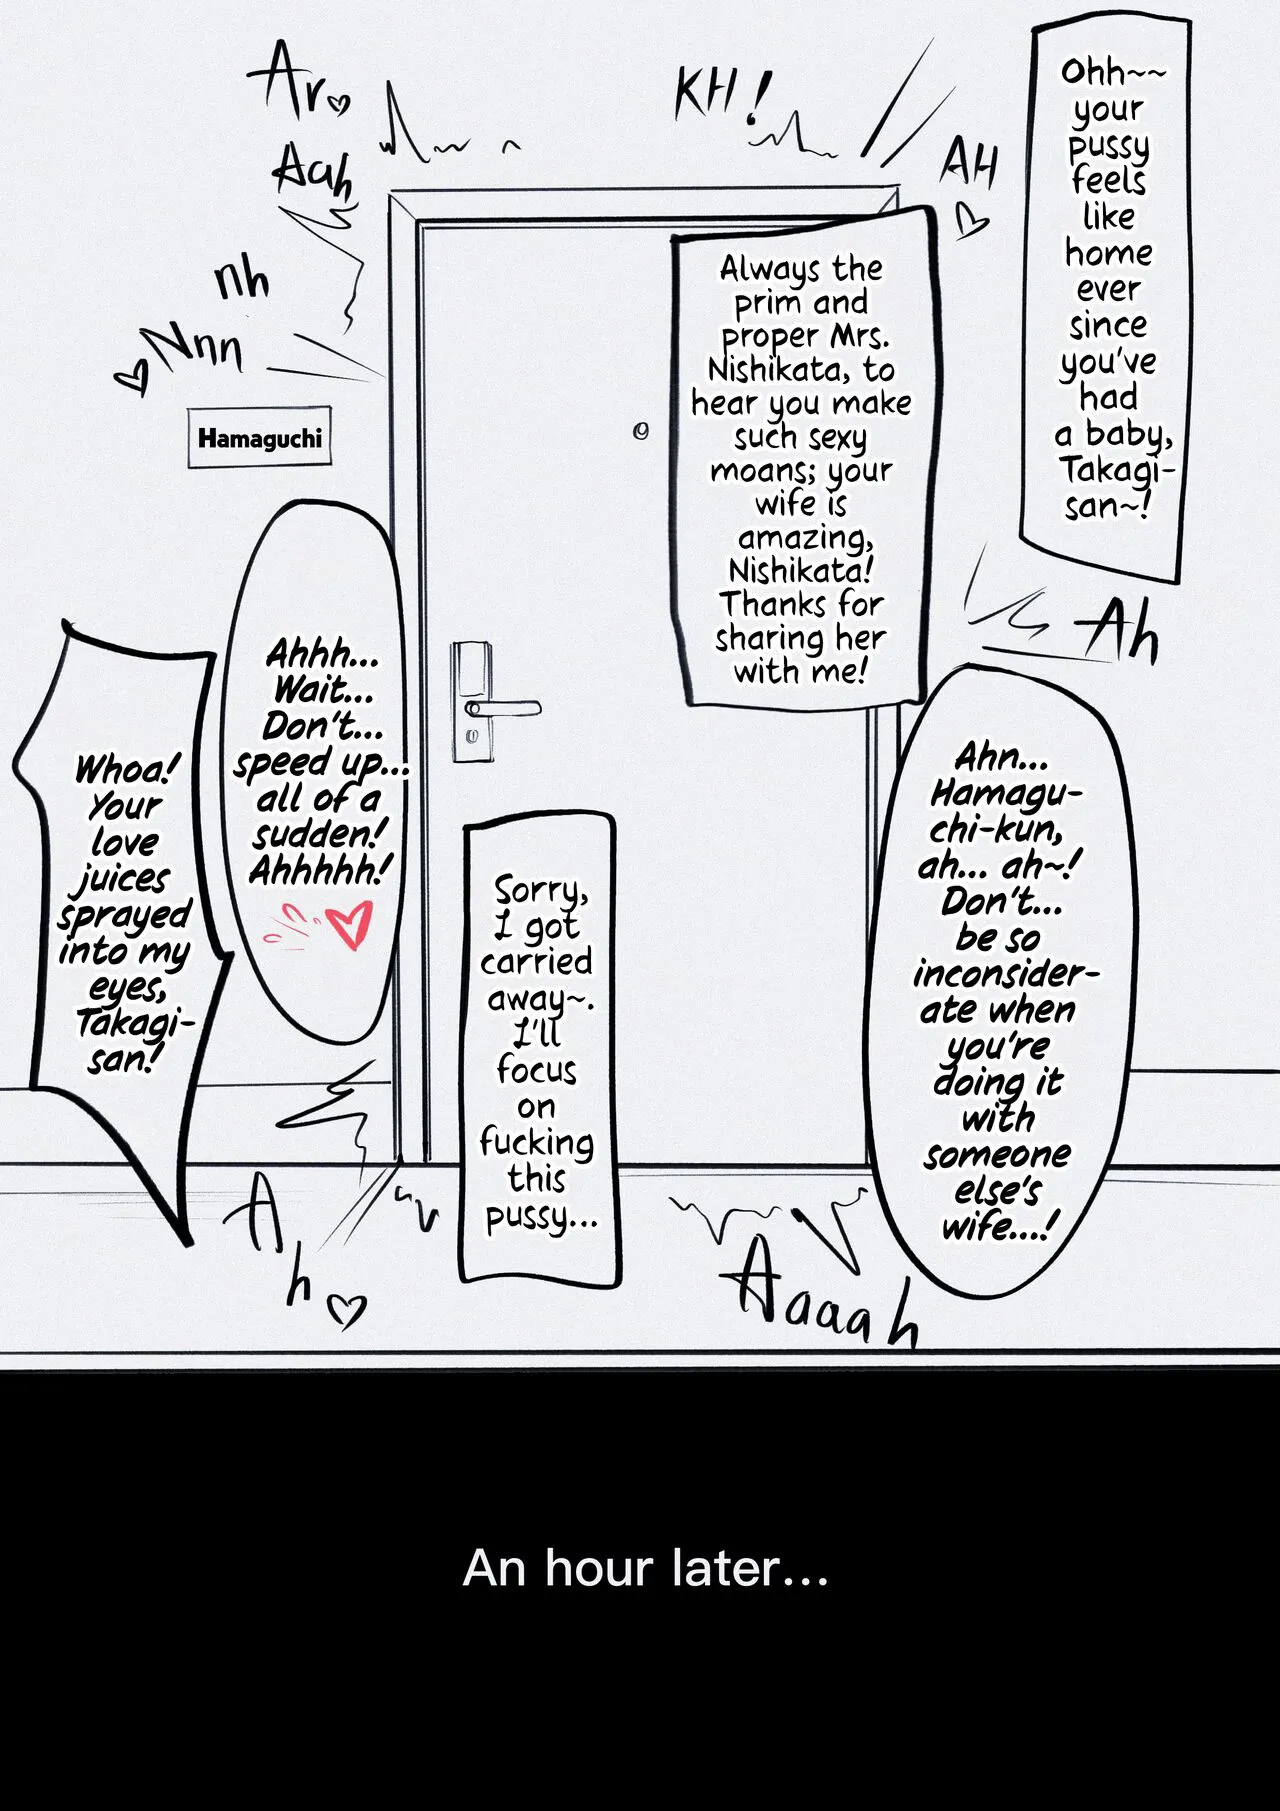 Ohh~~
your
pussy
feels
like
home
ever
since
you've
had
a baby,
Takagi-
san~!
KH!
AH
Ar
Aah
nh
Nnn
Always the
prim and
proper Mrs.
Nishikata, to
hear you make
such sexy
moans; your
wife is
amazing,
Nishikata!
Thanks for
sharing her
with me!
Hamaguchi
Ah
Ahn...
Hamagu-
chi-kun,
ah... ah~!
Don't...
be so
inconsider-
ate when
you're
doing it
with
someone
else's
wife...!
Sorry,
I got
carried
away~.
I'll
focus
on
fucking
this
pussy...
Ahhh...
Wait...
Don't...
speed up...
all of a
sudden!
Ahhhhh!
Whoa!
Your
love
juices
sprayed
into my
eyes,
Takagi-
san!
Aaaah
Ah
An hour later...